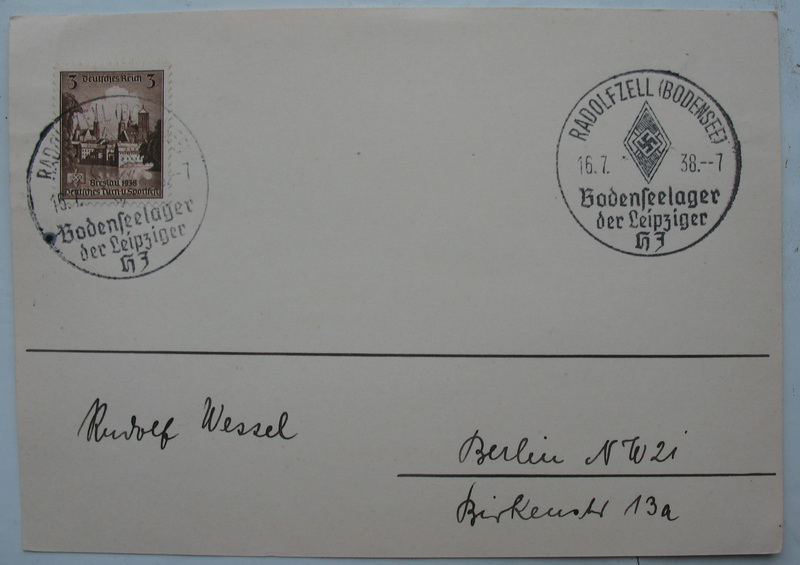 3 Deutsches Reich 3
Breslau 1938
Deutsches Turn-u. Sportfest
RADOLFZELL (BODENSEE)
16.7. 38.--7
Bodenseelager
der Leipziger
HJ
RADOLFZELL (BODENSEE)
16.7. 38.--7
Bodenseelager
der Leipziger
HJ
Rudolf Wessel
Berlin NW21
Birkenstr 13a